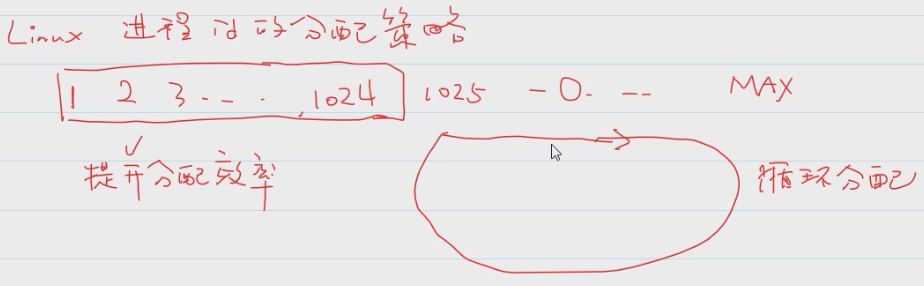 Linux 进程id的分配策略
1 2 3 -- · ·, 1024 1025 - 0. -- MAX
提升分配效率 循环分配